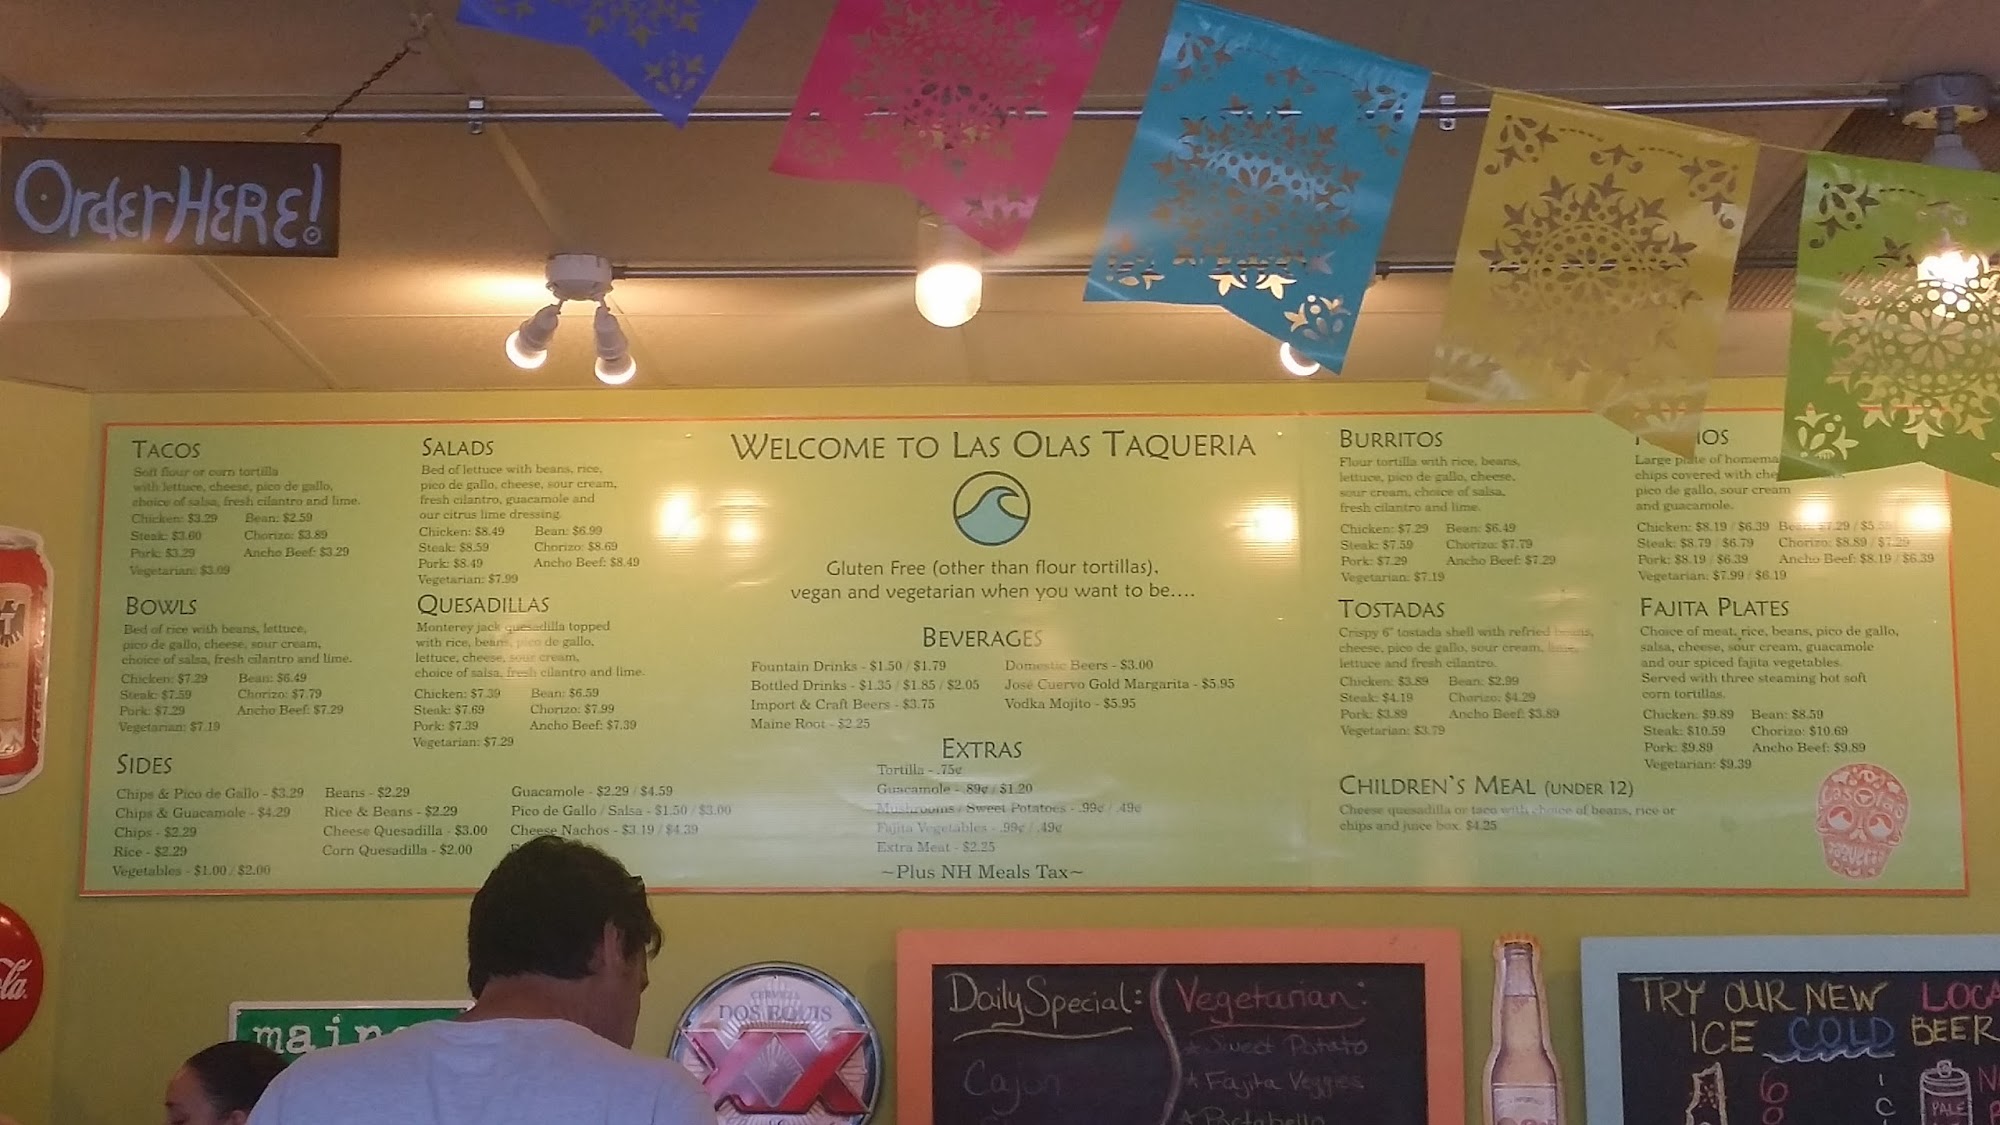 Order HERE!
TACOS
Soft flour or corn tortilla
with lettuce, cheese, pico de gallo,
choice of salsa, fresh cilantro and lime.
Chicken: $3.29 Bean: $2.59
Steak: $3.60 Chorizo: $3.89
Pork: $3.29 Ancho Beef: $3.29
Vegetarian: $3.09
BOWLS
Bed of rice with beans, lettuce,
pico de gallo, cheese, sour cream,
choice of salsa, fresh cilantro and lime.
Chicken: $7.29 Bean: $6.49
Steak: $7.59 Chorizo: $7.79
Pork: $7.29 Ancho Beef: $7.29
Vegetarian: $7.19
SIDES
Chips & Pico de Gallo - $3.29
Chips & Guacamole - $4.29
Chips - $2.29
Rice - $2.29
Vegetables - $1.00 / $2.00
Beans - $2.29
Rice & Beans - $2.29
Cheese Quesadilla - $3.00
Corn Quesadilla - $2.00
Guacamole - $2.29 / $4.59
Pico de Gallo / Salsa - $1.50 / $3.00
Cheese Nachos - $3.19 / $4.39
SALADS
Bed of lettuce with beans, rice,
pico de gallo, cheese, sour cream,
fresh cilantro, guacamole and
our citrus lime dressing.
Chicken: $8.49 Bean: $6.99
Steak: $8.59 Chorizo: $8.69
Pork: $8.49 Ancho Beef: $8.49
Vegetarian: $7.99
QUESADILLAS
Monterey jack quesadilla topped
with rice, beans, pico de gallo,
lettuce, cheese, sour cream,
choice of salsa, fresh cilantro and lime.
Chicken: $7.39 Bean: $6.59
Steak: $7.69 Chorizo: $7.99
Pork: $7.39 Ancho Beef: $7.39
Vegetarian: $7.29
WELCOME TO LAS OLAS TAQUERIA
Gluten Free (other than flour tortillas),
vegan and vegetarian when you want to be....
BEVERAGES
Fountain Drinks - $1.50 / $1.79
Bottled Drinks - $1.35 / $1.85 / $2.05
Import & Craft Beers - $3.75
Maine Root - $2.25
Domestic Beers - $3.00
José Cuervo Gold Margarita - $5.95
Vodka Mojito - $5.95
EXTRAS
Tortilla - .75¢
Guacamole - .89¢ / $1.20
Mushrooms / Sweet Potatoes - .99¢ / .49¢
Fajita Vegetables - .99¢ / .49¢
Extra Meat - $2.25
~Plus NH Meals Tax~
BURRITOS
Flour tortilla with rice, beans,
lettuce, pico de gallo, cheese,
sour cream, choice of salsa,
fresh cilantro and lime.
Chicken: $7.29 Bean: $6.49
Steak: $7.59 Chorizo: $7.79
Pork: $7.29 Ancho Beef: $7.29
Vegetarian: $7.19
TOSTADAS
Crispy 6" tostada shell with refried beans,
cheese, pico de gallo, sour cream, lime,
lettuce and fresh cilantro.
Chicken: $3.89 Bean: $2.99
Steak: $4.19 Chorizo: $4.29
Pork: $3.89 Ancho Beef: $3.89
Vegetarian: $3.79
CHILDREN'S MEAL (UNDER 12)
Cheese quesadilla or taco with choice of beans, rice or
chips and juice box. $4.25
Large plate of
chips covered with
pico de gallo, sour cream
and guacamole.
Chicken: $8.19 / $6.39 Bean: $7.29 / $5.59
Steak: $8.79 / $6.79 Chorizo: $8.89 / $7.29
Pork: $8.19 / $6.39 Ancho Beef: $8.19 / $6.39
Vegetarian: $7.99 / $6.19
FAJITA PLATES
Choice of meat, rice, beans, pico de gallo,
salsa, cheese, sour cream, guacamole
and our spiced fajita vegetables.
Served with three steaming hot soft
corn tortillas.
Chicken: $9.89 Bean: $8.59
Steak: $10.59 Chorizo: $10.69
Pork: $9.89 Ancho Beef: $9.89
Vegetarian: $9.39
Las Olas
Taqueria
main
CERVEZA
DOS EQUIS
XX
Daily Special:
Cajun
Vegetarian:
Sweet Potato
Fajita Veggies
Portabella
TRY OUR NEW LOCA
ICE COLD BEER
PALE